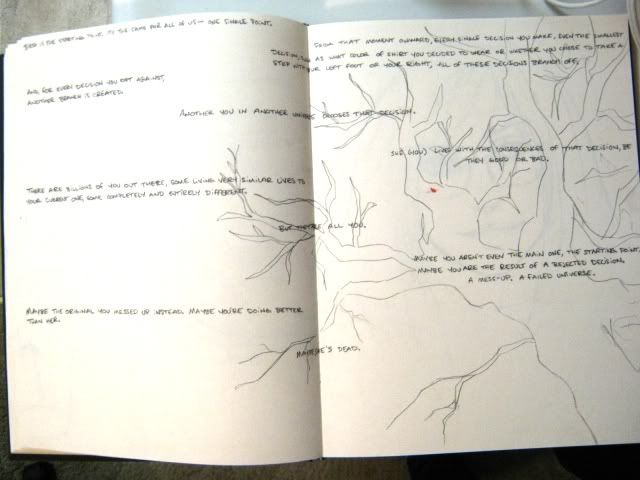 BIRTH IS THE STARTING POINT. IT'S THE SAME FOR ALL OF US — ONE SINGLE POINT.
FROM THAT MOMENT ONWARD, EVERY SINGLE DECISION YOU MAKE, EVEN THE SMALLEST
DECISION, SUCH AS WHAT COLOR OF SHIRT YOU DECIDED TO WEAR OR WHETHER YOU CHOSE TO TAKE A
STEP WITH YOUR LEFT FOOT OR YOUR RIGHT, ALL OF THESE DECISIONS BRANCH OFF,
AND FOR EVERY DECISION YOU OPT AGAINST,
ANOTHER BRANCH IS CREATED.
ANOTHER YOU IN ANOTHER UNIVERSE CHOOSES THAT DECISION.
SHE (YOU) LIVES WITH THE CONSEQUENCES OF THAT DECISION, BE
THEY GOOD OR BAD.
THERE ARE BILLIONS OF YOU OUT THERE, SOME LIVING VERY SIMILAR LIVES TO
YOUR CURRENT ONE, SOME COMPLETELY AND ENTIRELY DIFFERENT.
BUT THEY'RE ALL YOU.
MAYBE YOU AREN'T EVEN THE MAIN ONE, THE STARTING POINT.
MAYBE YOU ARE THE RESULT OF A REJECTED DECISION,
A MESS-UP. A FAILED UNIVERSE.
MAYBE THE ORIGINAL YOU MESSED UP INSTEAD. MAYBE YOU'RE DOING BETTER
THAN HER.
MAYBE SHE'S DEAD.